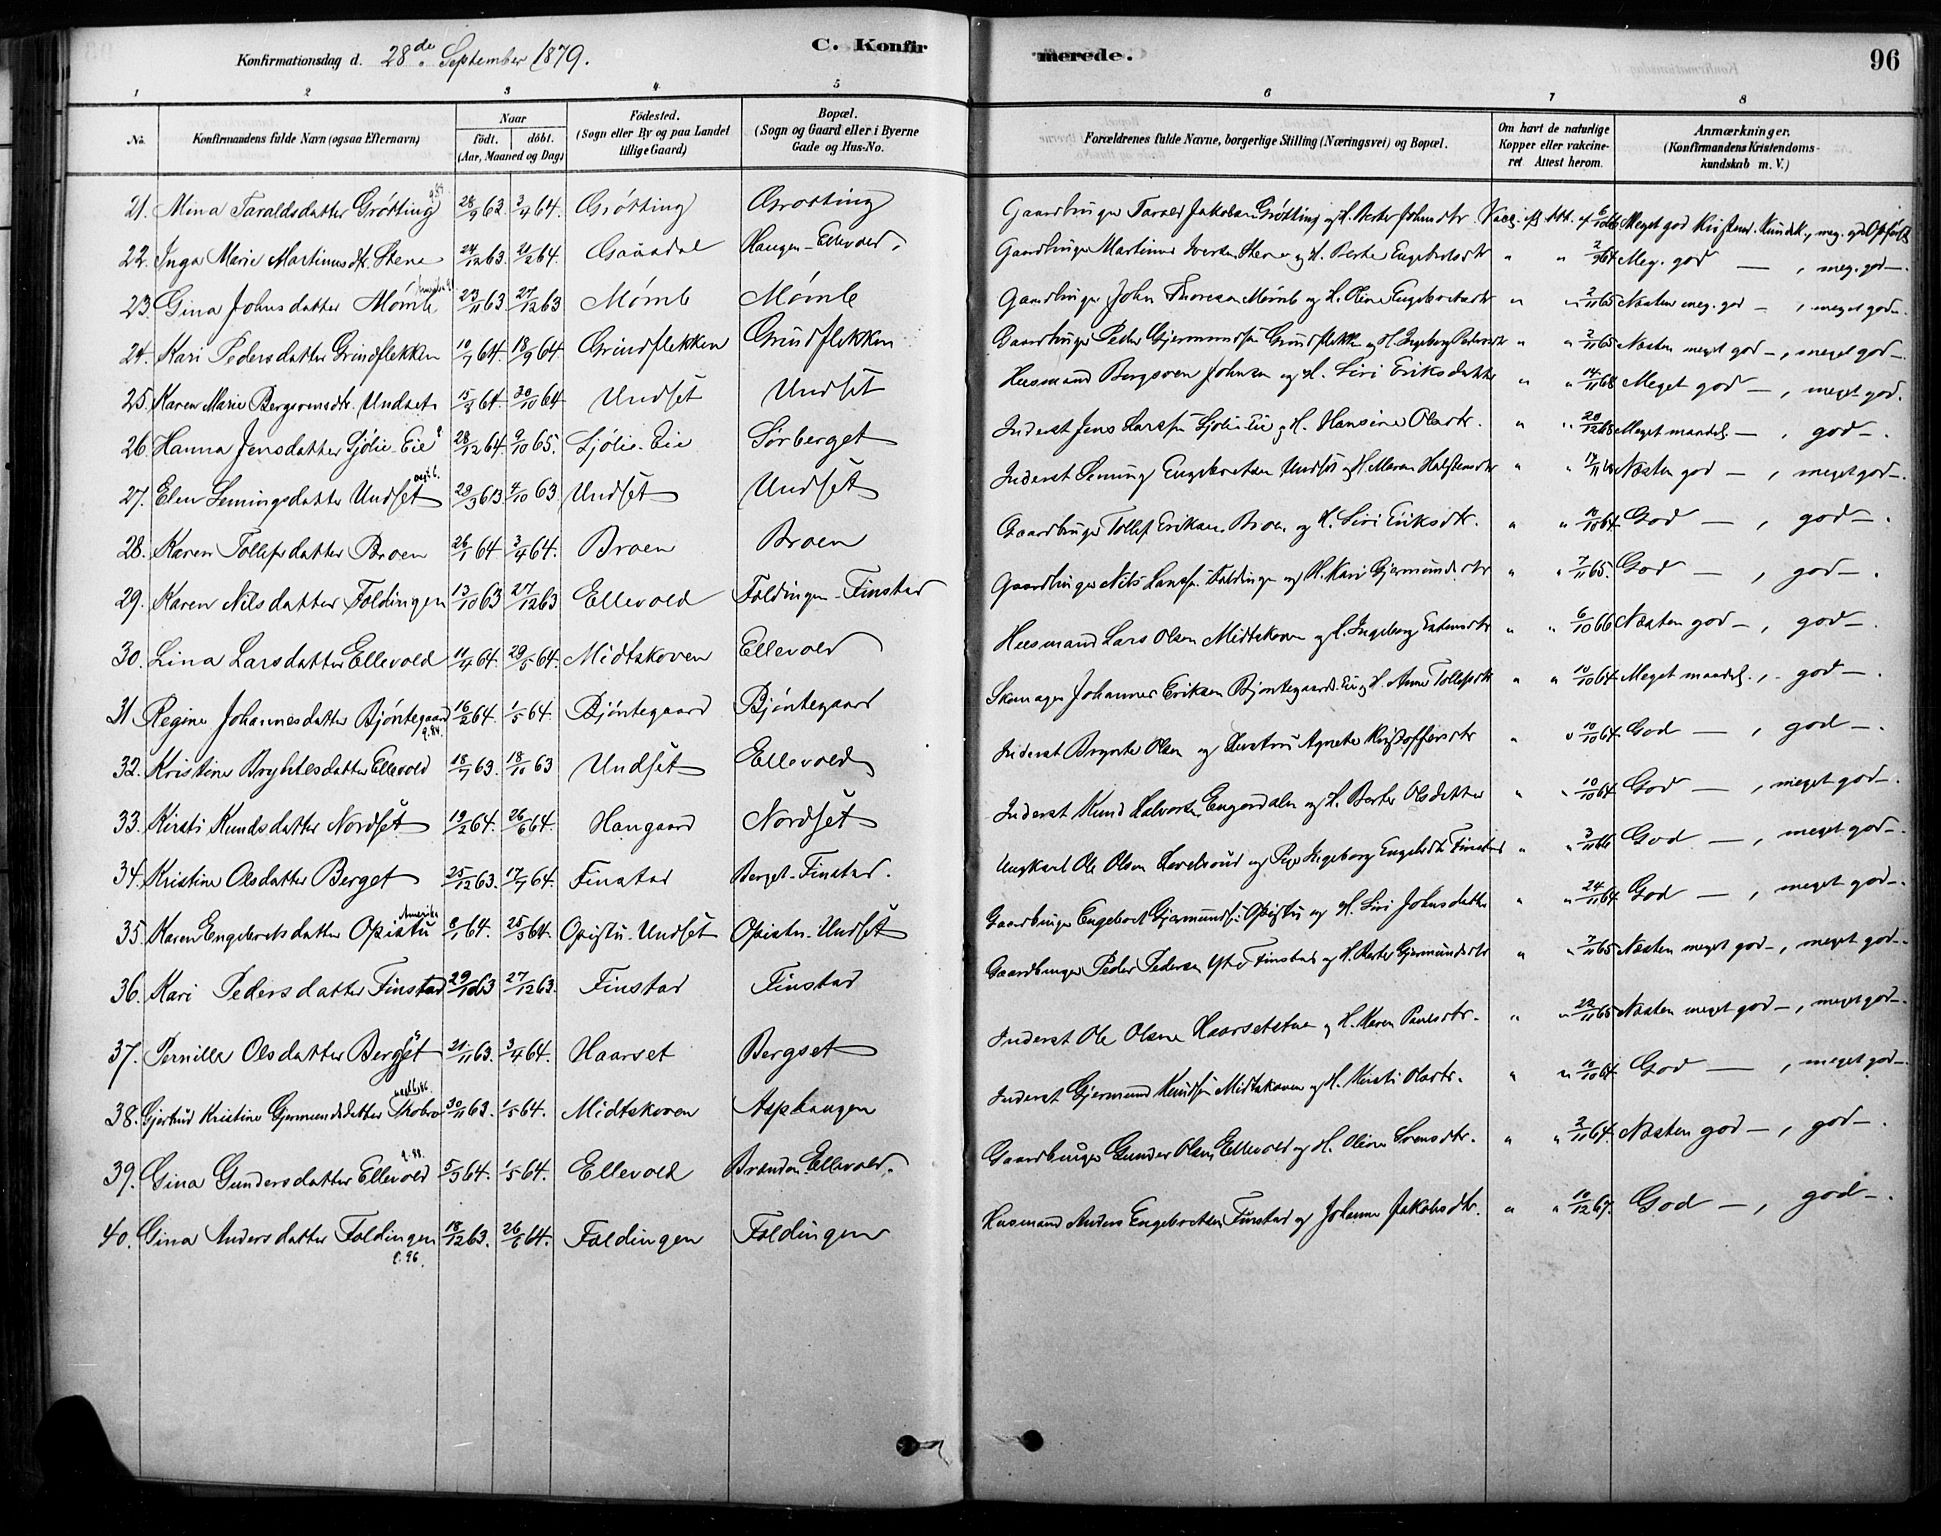 Konfirmationsdag d. 28de September 1879.
C. Konfir
merede.
96
1 2 3 4 5 6 7 8
No. Konfirmandens fulde Navn (ogsaa Efternavn) Naar født. døbt. (Aar, Maaned og Dag) Fødested. (Sogn eller By og paa Landet tillige Gaard) Bopæl. (Sogn og Gaard eller i Byerne Gade og Hus-No. Forældrenes fulde Navne, borgerlige Stilling (Næringsvei) og Bopæl. Om havt de naturlige Kopper eller vakcineret Attest herom. Anmærkninger. (Konfirmandens Kristendomskundskab m. V.)
21. Mina Taraldsdatter Grøtting 28/9 63 3/4 64. Grøtting Grøtting Gaardbruger Tarald Jakobsen Grøtting og H. Berte Johnsdtr Vacc. Att. af Meget god Kristend. Kundsk., meg. god
22. Inga Marie Martinusdtr. Stene 24/12 63. 21/2 64. Gaardbruger Martinus Iversen Stene og H. Berte Engebretsdtr " " Meg. god — , meg. god —.
23. Gina Johnsdatter Mømb 23/11 63 27/12 63 Mømb Mømb Gaardbruger John Thoresen Mømb og H. Oline Engebretsdtr " " 2/11 65 Næsten meg. god — , meget god —.
24. Kari Pedersdatter Grindflekken 10/7 64. 18/9 64. Grindflekken Grindflekken Gaardbruger Peder Gjermundsen Grindflekken og H. Ingeborg Pedersdtr " " 2/11 65 Næsten meget god —, meget god —.
25. Karen Marie Bergsvensdtr. Undset 15/8 64. 30/10 64 Undset Undset Husmand Bergsven Johnsen og H. Siri Eriksdatter " " 14/11 68 Meget god — , meget god.
26. Hanna Jensdatter Sjølie-Eie 28/12 64. 9/10 65. Sjølie-Eie Sørberget Inderst Jens Larssen Sjølie-Eie og H. Hansine Olsdtr. " " 20/12 68 Meget maadel. — , god —.
27. Elen Lemingsdatter Undset 29/3 63 4/10 63 Undset Undset Inderst Leming Engebretsen Undset og H. Maren Halstensdtr " " Næsten god — , meget god —.
28. Karen Tollefsdatter Broen 26/1 64. 3/4 64. Broen Broen Gaardbruger Tollef Eriksen Broen og H. Siri Eriksdtr. " " 10/10 64. God — , god —.
29. Karen Nilsdatter Foldingen 13/10 63 27/12 63 Ellevold Foldingen-Finstad Gaardbruger Nils Larssen Foldingen og H. Kari Gjermundsdtr " " 7/11 65. God — , god —.
30. Lina Larsdatter Ellevold 11/4 64. 29/5 64. Midtskoven Ellevold Husmand Lars Olsen Midtskoven og H. Ingeborg Estensdtr " " 6/10 66 Næsten god —, god —.
31 Regine Johannesdatter Bjøntegaard 16/2 64. 1/5 64. Bjøntegaard Bjøntegaard Skomager Johannes Eriksen Bjøntegaards-Eie og H. Anne Tollefsdtr " " 10/10 64. Meget maadel., god —.
32. Kristine Bryntesdatter Ellevold 18/7 63. 18/10 63 Undset Ellevold Inderst Brynte Olsen og Hustru Agnete Kristoffersdtr " " 10/10 64. God — , god —.
33. Kirsti Knudsdatter Nordset 19/2 64. 26/6 64. Haugaard Nordset Inderst Knud Halvorsen Engerdalen og H. Berte Olsdatter " " 10/10 64. God — , meget god —.
34. Kristine Olsdatter Berget 25/12 63. 17/7 64. Finstad Berget-Finstad. Ungkarl Ole Olsen og Pige Ingeborg Engebdtr Finstad " " 3/11 66 God — , meget god —.
35. Karen Engebretsdatter Opistu Amerika 8/1 64. 25/3 64. Opistu-Undset Opistu-Undset Gaardbruger Engebret Gjermundsen Opistu og H. Siri Johnsdatter " " 24/11 64 God — , meget god —.
36. Kari Pedersdatter Finstad 29/10 63 27/12 63. Finstad Finstad Gaardbruger Peder Pedersen Ytre Finstad og H. Berte Gjermundsdtr " " 7/11 65 Næsten meget god —, meget god —.
37. Pernille Olsdatter Bergset 21/11 63. 3/4 64. Haarset Bergset Inderst Ole Olsen Haarsetstuen og H. Karen Paulsdtr. " " 22/11 65 Næsten meget god —, meget god —.
38. Gjertrud Kristine Gjermundsdatter 30/11 63. 1/5 64. Midtskoven Asphaugen Inderst Gjermund Knudsen Midtskoven og H. Kirsti Olsdtr. " " 10/10 64. God — , meget god —.
39. Gina Gundersdatter Ellevold 5/3 64. 1/5 64. Ellevold Branden-Ellevold. Gaardbruger Gunder Olsen Ellevold og H. Oline Svensdtr. " " 2/11 64. Næsten god —, god —.
40. Gina Andersdatter Foldingen 18/12 63. 26/6 64. Foldingen Foldingen Husmand Anders Engebretsen Finstad og Johanne Jakobsdtr. " " 10/12 67. God —, god —.